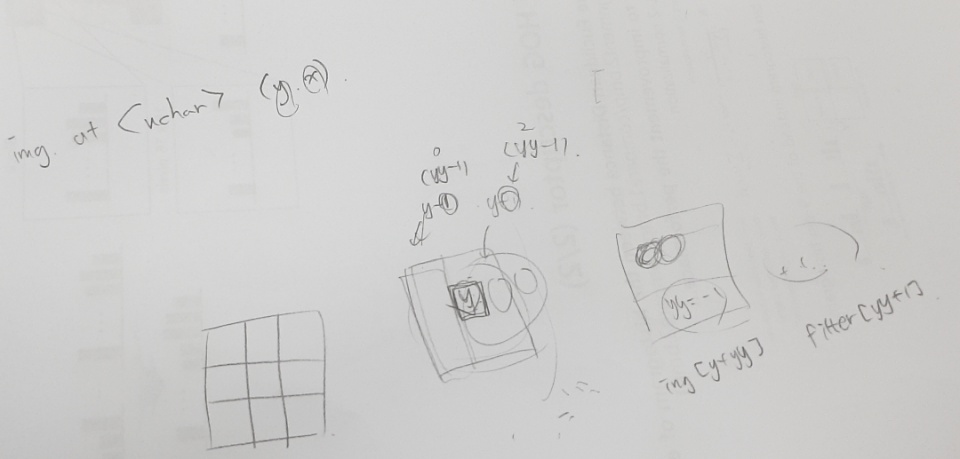 img. at <uchar> (y, x).
0
(yy-1)
y-1
2
(yy-1).
y
yy=-1
img [y+yy]
filter [yy+1]